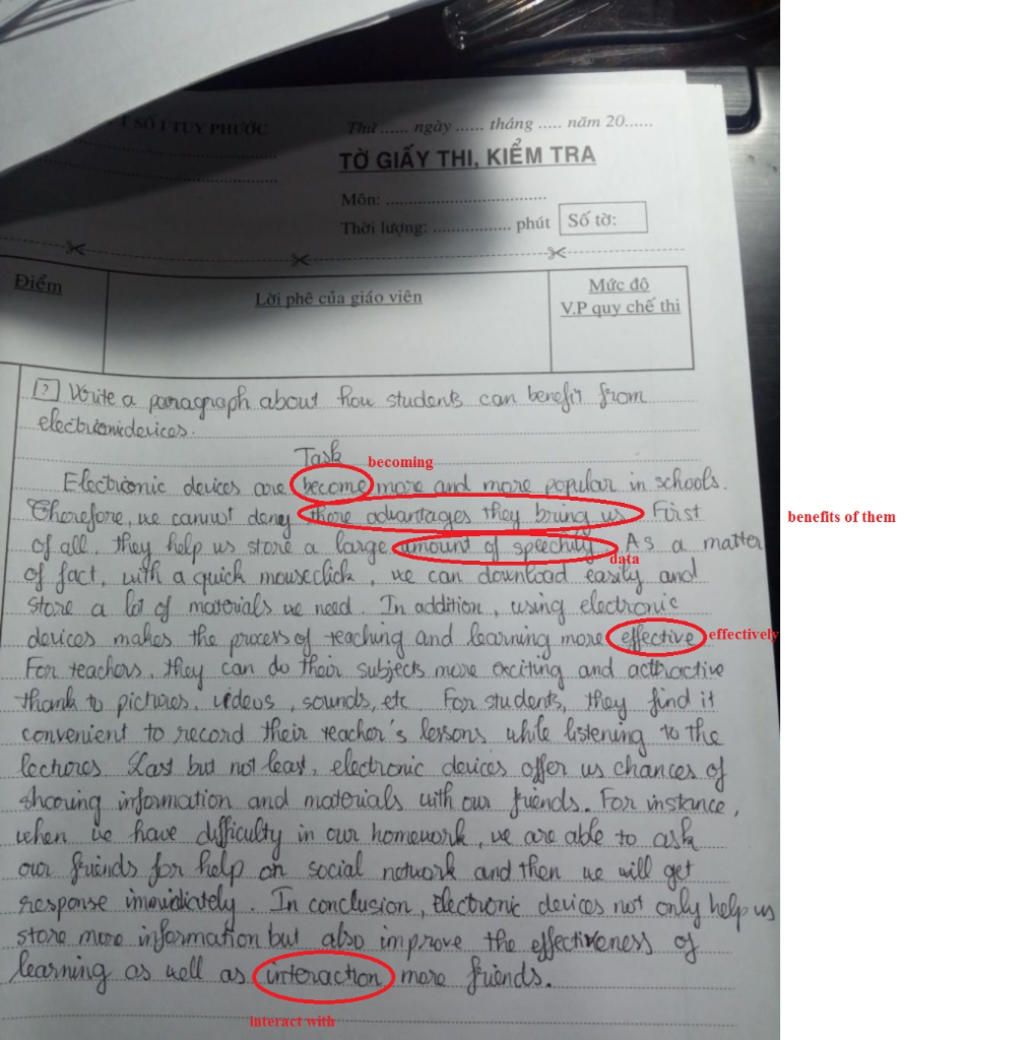 T SỐ 1 TUY PHƯỚC
Thứ ...... ngày ...... tháng ..... năm 20......
TỜ GIẤY THI, KIỂM TRA
Môn: ..................................
Thời lượng: ................. phút
Số tờ:
Điểm
Lời phê của giáo viên
Mức độ
V.P quy chế thi
? Write a paragraph about how students can benefit from
electrionidevices.
Task
becoming
Electrionic devices are become more and more popular in schools.
Therefore, we cannot deny there advantages they bring us First
benefits of them
of all, they help us store a large amount of speechily. As a matter
data
of fact, with a quick mouseclick, we can download easily and
store a lot of materials we need. In addition, using electronic
devices makes the process of teaching and learning more effective
effectively
For teachers, they can do their subjects more exciting and acttractive
thank to pictures, videos, sounds, etc. For students, they find it
convenient to record their teacher's lessons while listening to the
lectores. Last but not least, electronic devices offer us chances of
sharing information and materials with our friends. For instance,
when we have difficulty in our homework, we are able to ask
our friends for help on social network and then we will get
response immidiately. In conclusion, electronic devices not only help us
store more information but also improve the effectiveness of
learning as well as interaction more friends.
interact with